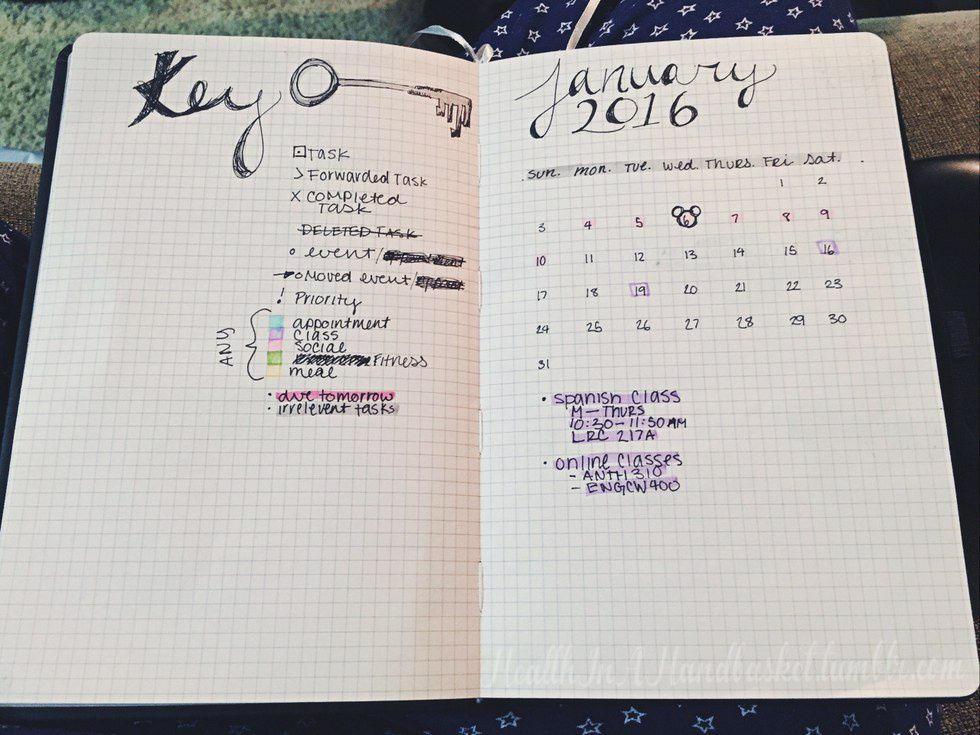 Key
Task
> Forwarded Task
X COMPLETED
TASK
DELETED TASK
o event/
o Moved event/
! Priority
ANY
appointment
CLASS
SOCIAL
FITNESS
meal
• due tomorrow
• irrelevent tasks
January
2016
sun. mon. Tue. wed. THURS. Fri sat.
1 2
3 4 5 6 7 8 9
10 11 12 13 14 15 16
17 18 19 20 21 22 23
24 25 26 27 28 29 30
31
• spanish class
M – THURS
10:30 – 11:50 AM
LRC 217A
• online classes
– ANTH 310
– ENGCW400
HealthInAHandbasket.tumblr.com